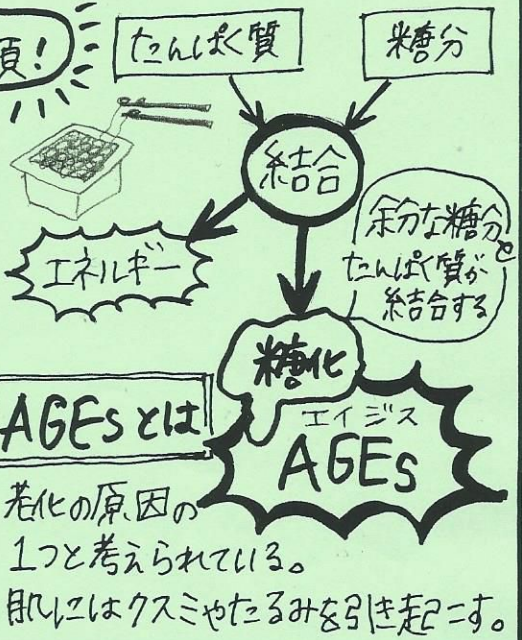 須!
たんぱく質
糖分
結合
エネルギー
余分な糖分と
たんぱく質が
結合する
糖化
エイジス
AGEs
AGEsとは
老化の原因の
1つと考えられている。
肌にはクスミやたるみを引き起こす。